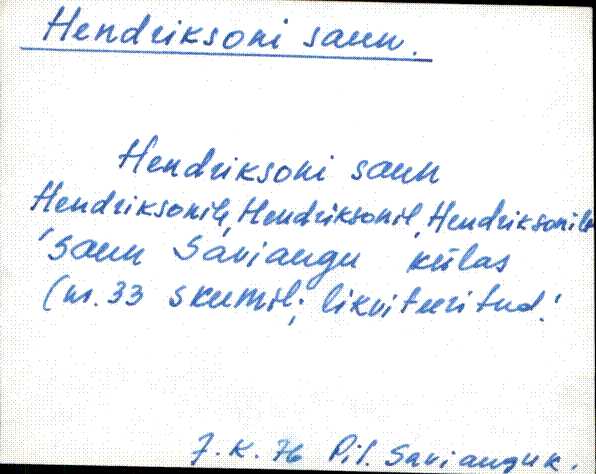 Hendriksoni saun.
Hendriksoni saun
Hendriksonih, Hendriksonil, Hendriksonile
'saun Sariangu külas
(nr. 33 skeemil; likviteeritud.'
J. K. 76 Pil. Sarianguk.